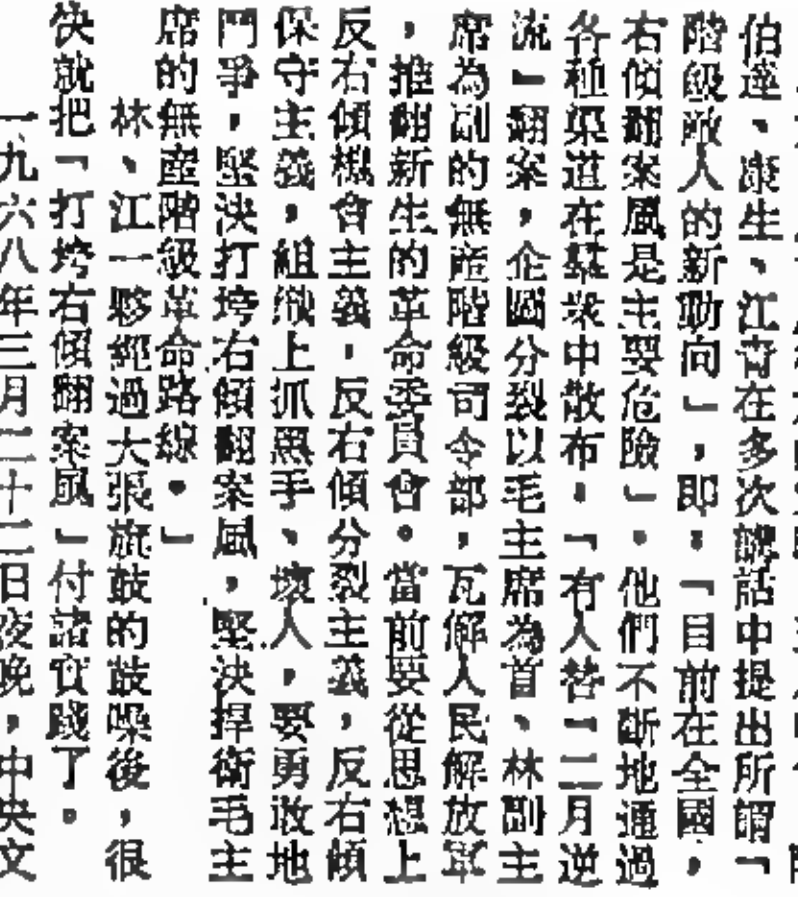 伯達、康生、江青在多次講話中提出所謂「
階級敵人的新動向」,即:「目前在全國,
右傾翻案風是主要危險」。他們不斷地通過
各種渠道在羣衆中散布,「有人替「二月逆
流」翻案,企圖分裂以毛主席為首、林副主
席為副的無産階級司令部,瓦解人民解放軍
,推翻新生的革命委員會。當前要從思想上
反右傾機會主義,反右傾分裂主義,反右傾
保守主義,組織上抓黑手、壞人,要勇敢地
鬥爭,堅決打垮右傾翻案風,堅決捍衛毛主
席的無産階級革命路線。」
林、江一夥經過大張旗鼓的鼓噪後,很
快就把「打垮右傾翻案風」付諸實踐了。
一九六八年三月二十二日夜晚,中央文